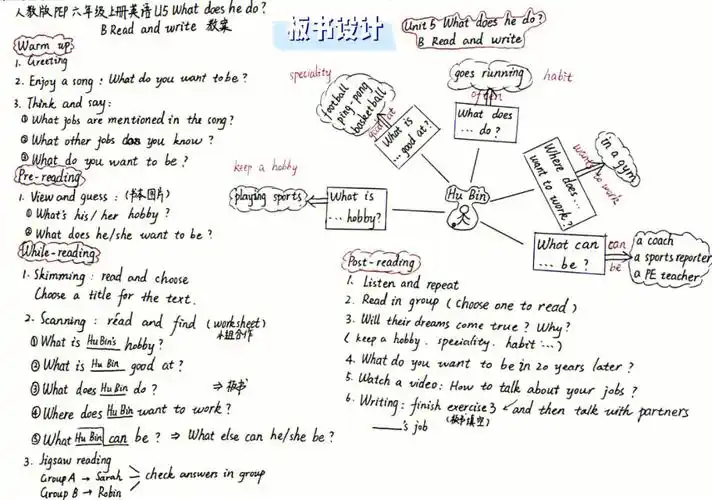 人教版 PEP 六年级上册英语 U5 What does he do?
B Read and write 教案
Warm up
1. Greeting
2. Enjoy a song : What do you want to be?
3. Think and say:
① What jobs are mentioned in the song?
② What other jobs do you know?
③ What do you want to be?
Pre-reading
1. View and guess : (书本图片)
① What's his/her hobby?
② What does he/she want to be?
While-reading
1. Skimming : read and choose
Choose a title for the text.
2. Scanning : read and find (worksheet)
小组合作
① What is Hu Bin's hobby?
② What is Hu Bin good at?
③ What does Hu Bin do? ⇒ 板书
④ Where does Hu Bin want to work?
⑤ What Hu Bin can be? ⇒ What else can he/she be?
3. Jigsaw reading
Group A → Sarah
Group B → Robin
check answers in group
板书设计
Unit 5 What does he do?
B Read and write
speciality
football
ping-pong
basketball
good at
What is
... good at?
goes running
habit
often
What does
... do?
in a gym
wants to work
Where does...
want to work?
keep a hobby
playing sports
What is
... hobby?
Hu Bin
What can
... be?
can
be
a coach
a sports reporter
a PE teacher
Post-reading
1. Listen and repeat
2. Read in group (choose one to read)
3. Will their dreams come true? Why?
(keep a hobby. speciality. habit ...)
4. What do you want to be in 20 years later?
5. Watch a video: How to talk about your jobs?
6. Writing: finish exercise 3 and then talk with partners
(板书填空)
____'s job